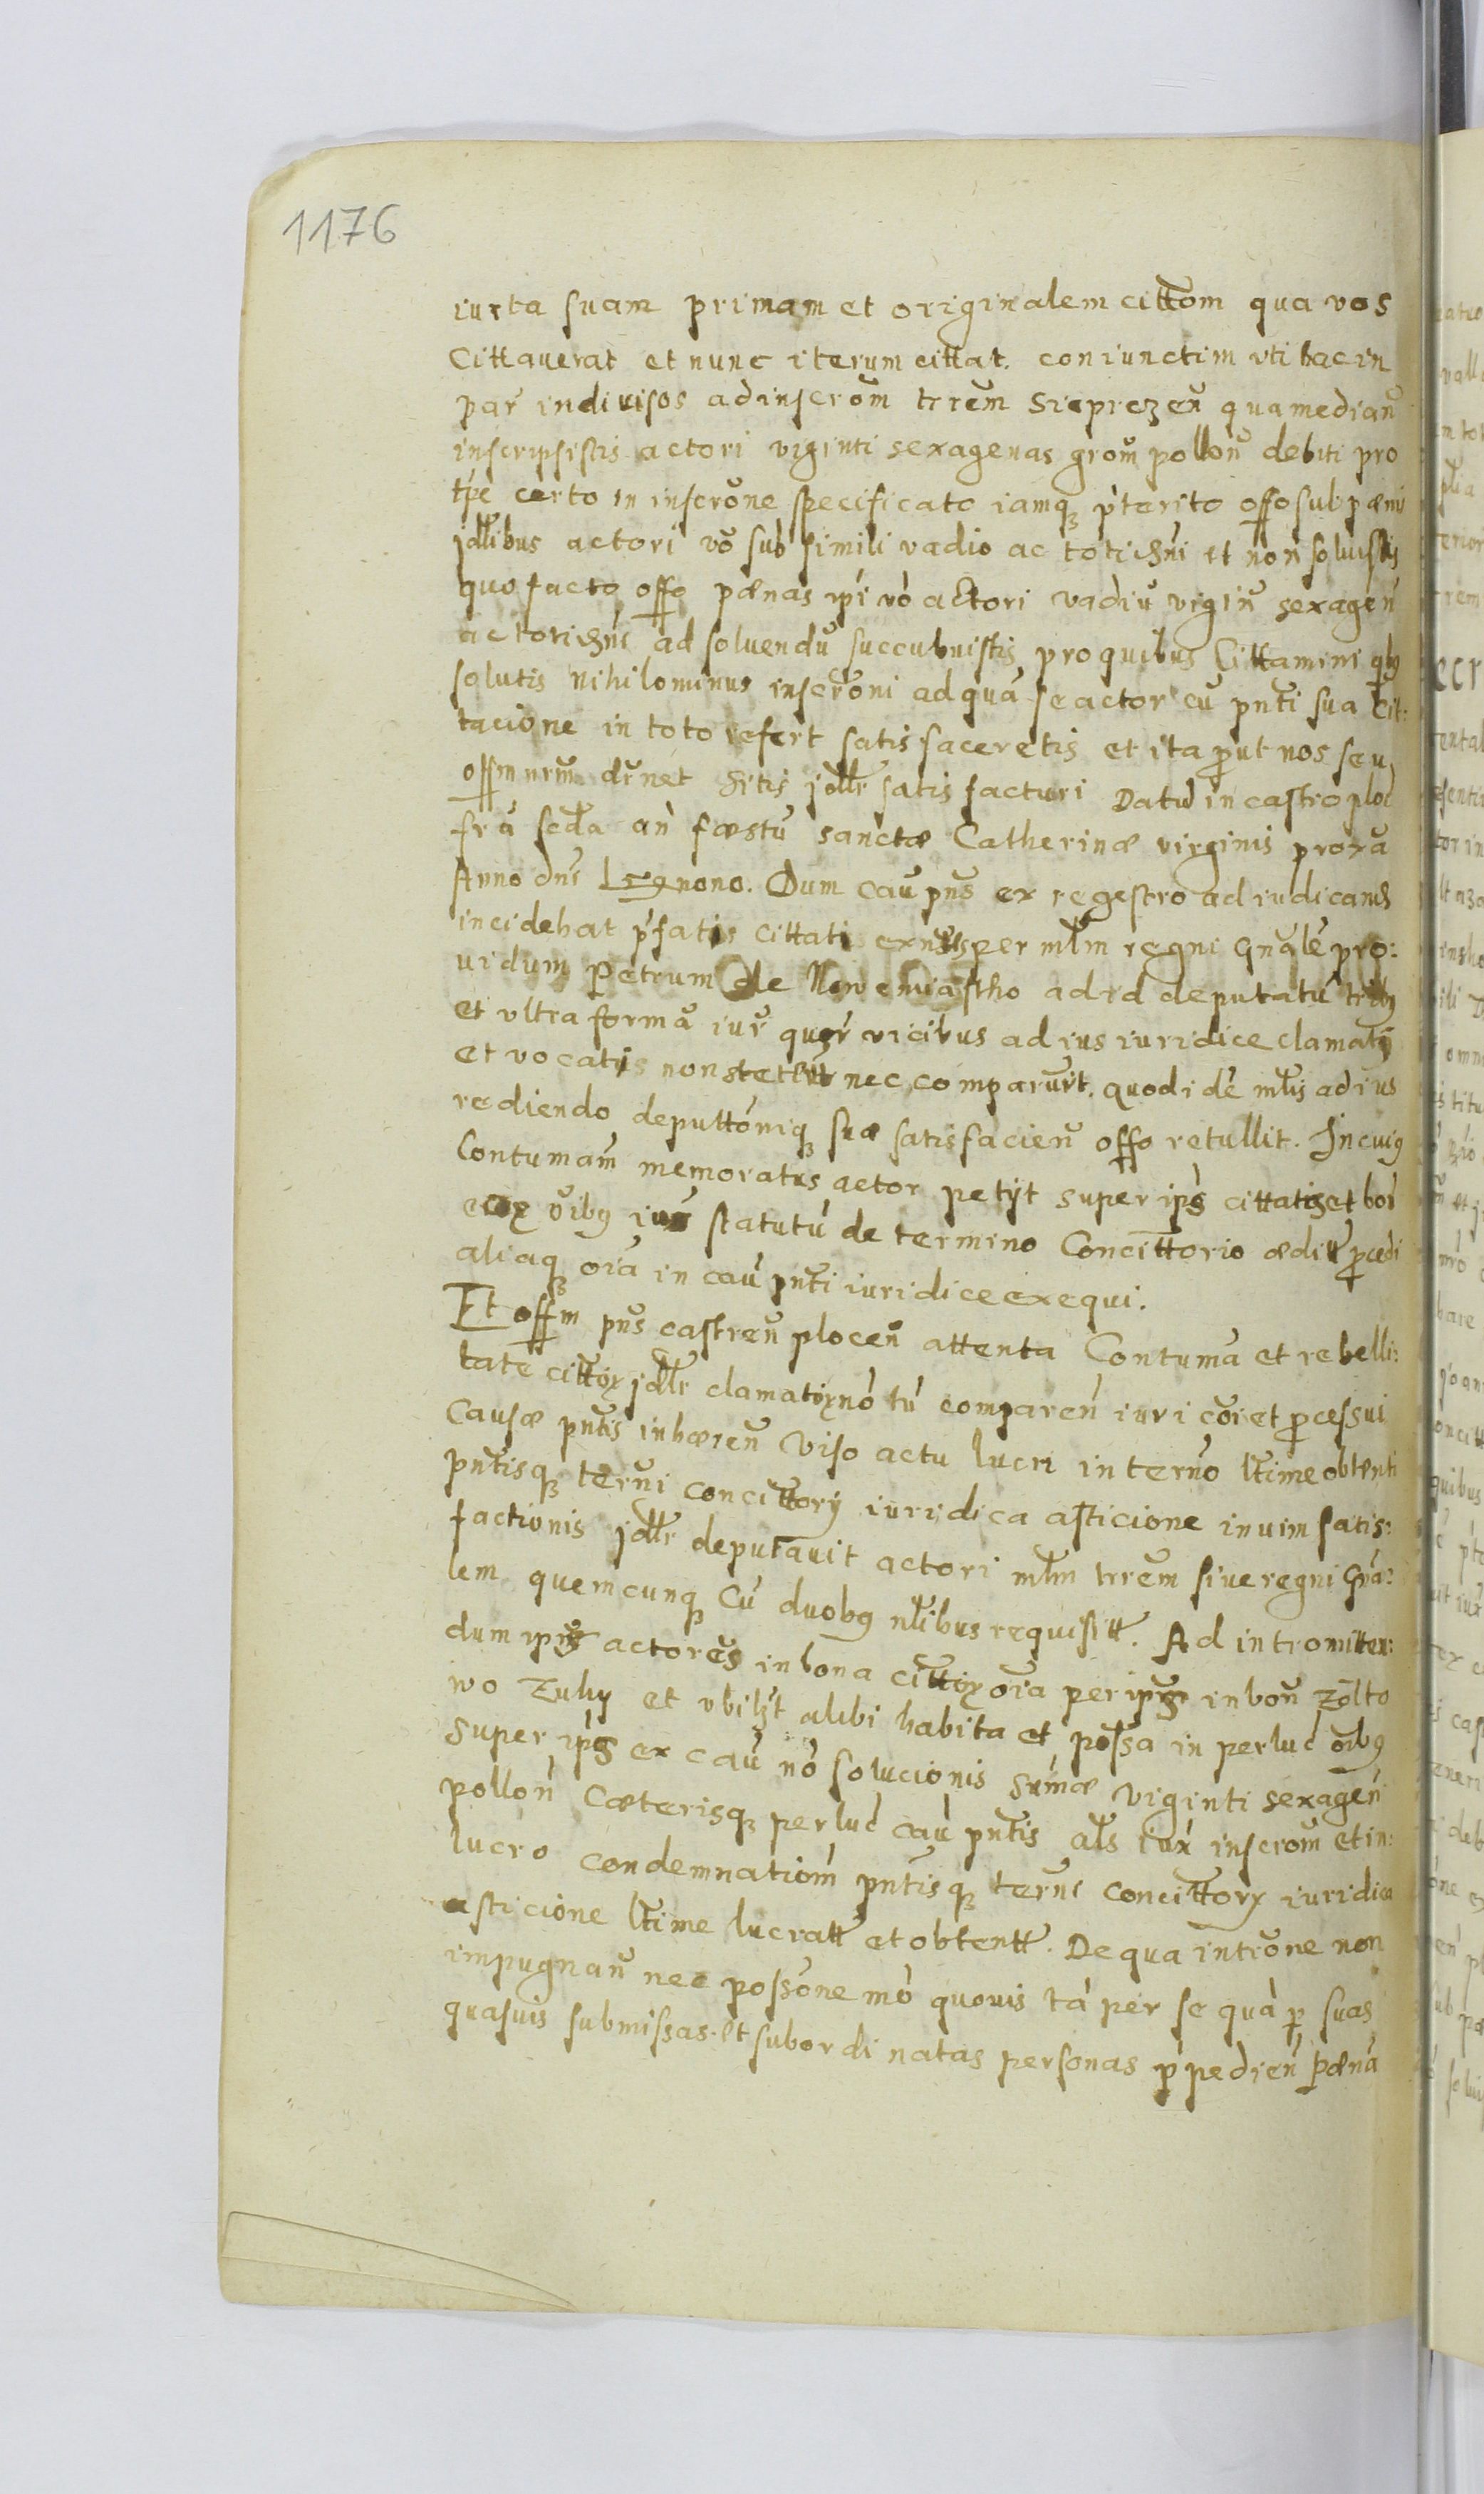 1176
iuxta suam primam et originalem cittõm qua vos
Cittauerat et nunc iterum cittat. coniunctim uti hac in
par indiuisos ad inscrõm trrẽm Sieprczeñ qua mediañ
inscripsistis actori viginti sexagenas grom pollõn debiti pro
tp̃e certo in inscrõne specificato iamq̨ p̃terito offo sub pæni
jdlibus actori võ sub simili vadio ac toti et non soluistis
quo facto offo pænas ip̃i vo actori vadiũ vigiñ sexageñ
ac toti ad soluendũ succubuistis pro quibus Cittamini qb9
solutis Nihilominus inscrõni ad quã se actor cũ pñti sua Cit:
tacione in toto refert satisfaceretis et ita put nos seu
offm nrũm ditis jdllr satisfacturi Datũ in castro ploc
fr̃a scda añ fæstũ sanctæ Catherinæ virginis proxã
Anno dni nono. Dum caũ pñs ex regestro ad iudicand
incidebat p̃fatis Cittati per mlm regni Gñalẽ pro:
uidum Petrum de Nowemiastho ad id deputatũ trib9
et vltra formã iur̃ vicibus ad ius iuridice clamatj
et vocatis non nec comparuit. quod idẽ mlis ad ius
rediendo deputtõniq̨ suæ satisfacieñ offo retullit. In cui9
Contumam̃ memoratus actor petijt super ip̃s cittatis et boñ
eor̃ õib9 statutũ de termino Concittorio ædit̃ p̃cedi
aliaq̨ oĩa in caũ pñti iuridice exequi.
Et offm pñs castreñ ploceñ attenta Contumã et rebelli:
tatẽ cittor̃ jdllr clamator̃ nõ tñ compareñ iuri cõi et pcessui
Causæ pñtis inhæreñ Viso actu lucri in terño ltime obtenti
pñtisq̨ terñi concittorij iuridica asticione in uim satis:
factionis jdllr deputauit actori mlm trrẽm siue regni Gñã:
lem quemcunq̨ Cũ duob9 nlibus requisitt. Ad intromitten:
dum ip̃s actores in bona cittor̃ oĩa per ip̃s in boñ Zolto
wo Zuhy et vbilz̃t alibi habita et possa in perluc̃ oĩb9
super ip̃s ex caũ nõ solucionis sum̃æ viginti sexageñ
pollõn Cæterisq̨ perluc̃ caũ pñtis als iux̃ inscrõm et in:
lucro condemnatiom̃ pñtisq̨ terñi concittorij iuridica
asticione ltime lucratt et obtentt. De qua intrõne non
impugnañ nec possõne mõ quouis tã per se quã p suas
quasuis submissas et subordinatas personas p̃pedieñ pænã